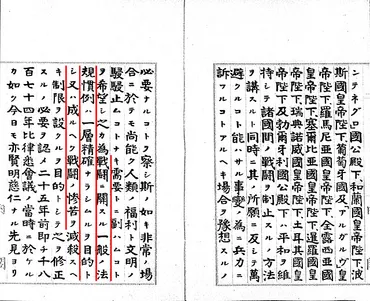 ンテネグロ國公殿下、和蘭國皇帝陛下、波
斯國皇帝陛下、葡萄牙國及「アルガルヴ」皇
帝陛下、羅馬尼亞國皇帝陛下、全露西亞國
皇帝陛下、塞爾比亞國皇帝陛下、暹羅國皇
帝陛下、瑞典諾威國皇帝陛下、土耳其國皇
帝陛下及勃爾牙利國公殿下ハ平和ヲ維
持シ諸國間ノ戰鬪ヲ制止スルノ方法
ヲ講スルト同時ニ其ノ所願ニ反シテ萬
避クルコト能ハサル事變ノ爲ニ兵力ニ
訴フルコトアルヘキ場合ヲ豫想スルノ
必要ナルコトヲ察シ斯ノ如キ非常ノ場
合ニ於テモ尚能ク人類ノ福利ト文明ノ
駸駸止ムコトナキ需要トニ副ハムコト
ヲ希望シ之カ爲戰鬪ニ關スル一般ノ法
規慣例ハ一層精確ナラシムルヲ目的ト
シ又ハ成ルヘク戰鬪ノ惨苦ヲ減殺スヘ
キ制限ヲ設クルヲ目的トシテ之ヲ修正
スルノ必要ヲ認メ二十五年前即チ千八
百七十四年比律悉會議ノ當時ニ於ケル
カ如ク今日モ亦賢明慈仁ナル先見ヨリ